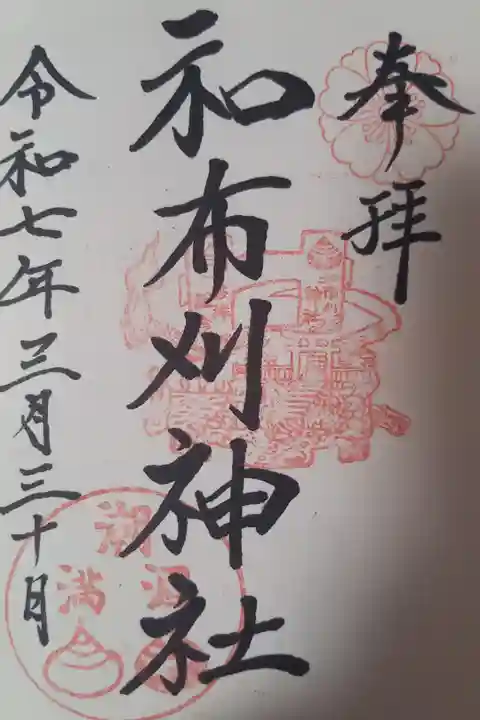 奉拝
和布刈神社
令和七年三月三十日
潮
満